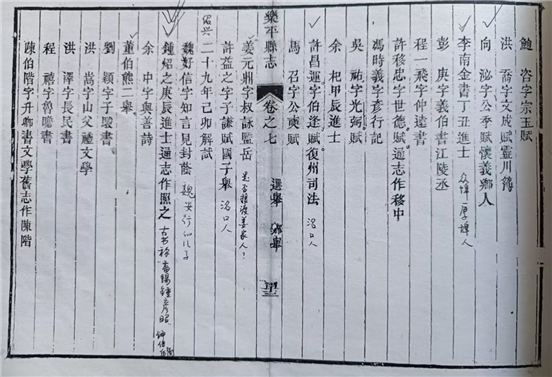 鮑 咨字宗玉賦
洪 喬字文成賦靈川簿
向 泌字公季賦懷義鄉人
李南金書丁丑進士
彭 庚字義伯書江陵丞
程一飛字仲逵書
許移忠字世德賦通志作移中
馮時義字彥行記
吳 祐字光弼賦
余 杞甲辰進士
許昌運字伯逢賦復州司法 洺口人
馬 召字公奭賦
樂平縣志 卷之七 選舉
姜元鼎字叔詠監岳
許益之字子謙賦國子舉 洺口人
紹興二十九年己卯解試
魏好信字知言見封蔭
鍾紹之庚辰進士通志作熙之
余 中字與善詩
董伯熊二舉
劉 穎字子嚴書
洪 嵩字山父禮文學
洪 澤字民長書
程 禧字魯瞻書
陳伯階字升卿書文學舊志作陳階